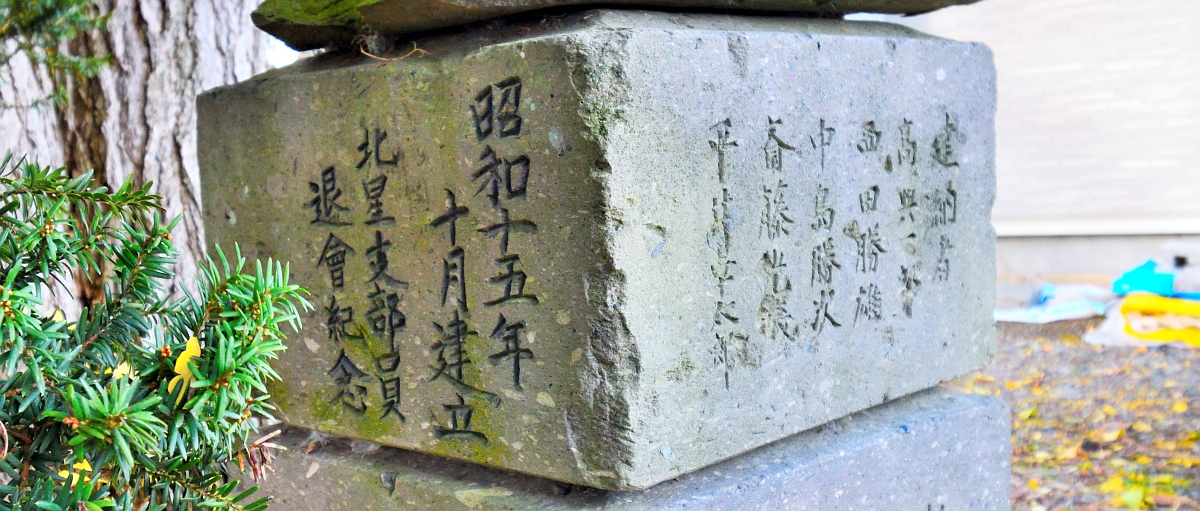 昭和十五年
十月建立
北星支部員
退會紀念
建納者
高
西田勝雄
中島勝次
斎藤
平